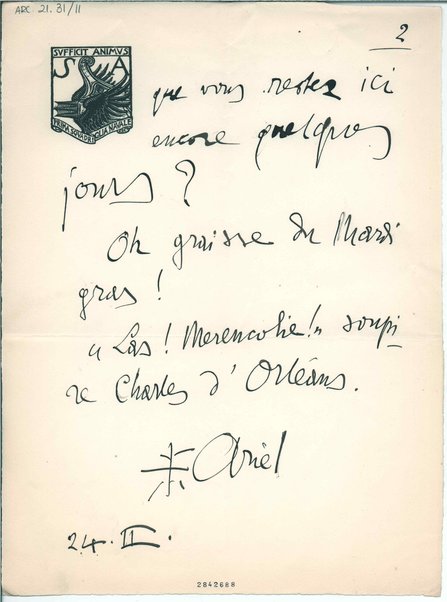 ARC. 21. 31/11
2
SVFFICIT ANIMVS
S A
PRIMA SQVADRIGLIA NAVALE
que vous restez ici
encore quelques
jours ?
Oh graisse du Mardi
gras !
« Las ! Merencolie ! » soupi
re Charles d'Orléans.
Ariel
24. II.
2842688